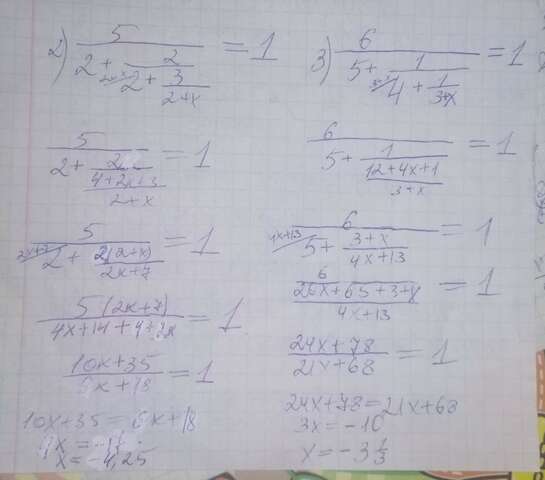 2) 5/(2 + 2/(2 + 3/(2+x))) = 1
5/(2 + 2/((4+2x+3)/(2+x))) = 1
5/(2 + 2(2+x)/(2x+7)) = 1
5(2x+7)/(4x+14+4+2x) = 1
(10x+35)/(6x+18) = 1
10x+35 = 6x+18
4x = -17
x = -4,25
3) 6/(5 + 1/(4 + 1/(3+x))) = 1
6/(5 + 1/((12+4x+1)/(3+x))) = 1
6/(5 + (3+x)/(4x+13)) = 1
6/((20x+65+3+x)/(4x+13)) = 1
(24x+78)/(21x+68) = 1
24x+78 = 21x+68
3x = -10
x = -3 1/3